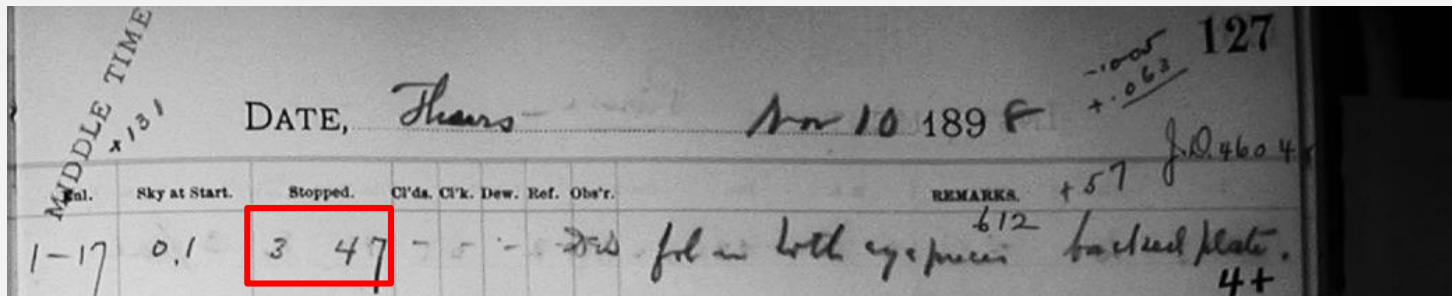 127
-.005
+.063
MIDDLE TIME
x131
DATE, Thurs Nov 10 1898
J.D. 4604
+57
Enl. Sky at Start. Stopped. Cl'ds. Cl'k. Dew. Ref. Obs'r. REMARKS.
612
1-17 0,1 3 47 - - - fol in both eyepieces backed plate.
4+